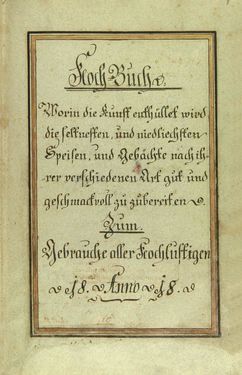 Koch Buch.
Worin die Kunst enthüllet wird
die seltnesten, und niedlichsten
Speisen, und Gebächte nach ih-
rer verschiedenen Art gut und
geschmackvoll zu zubereiten
Zum
Gebrauche aller Kochlustigen
18. Anno 18.